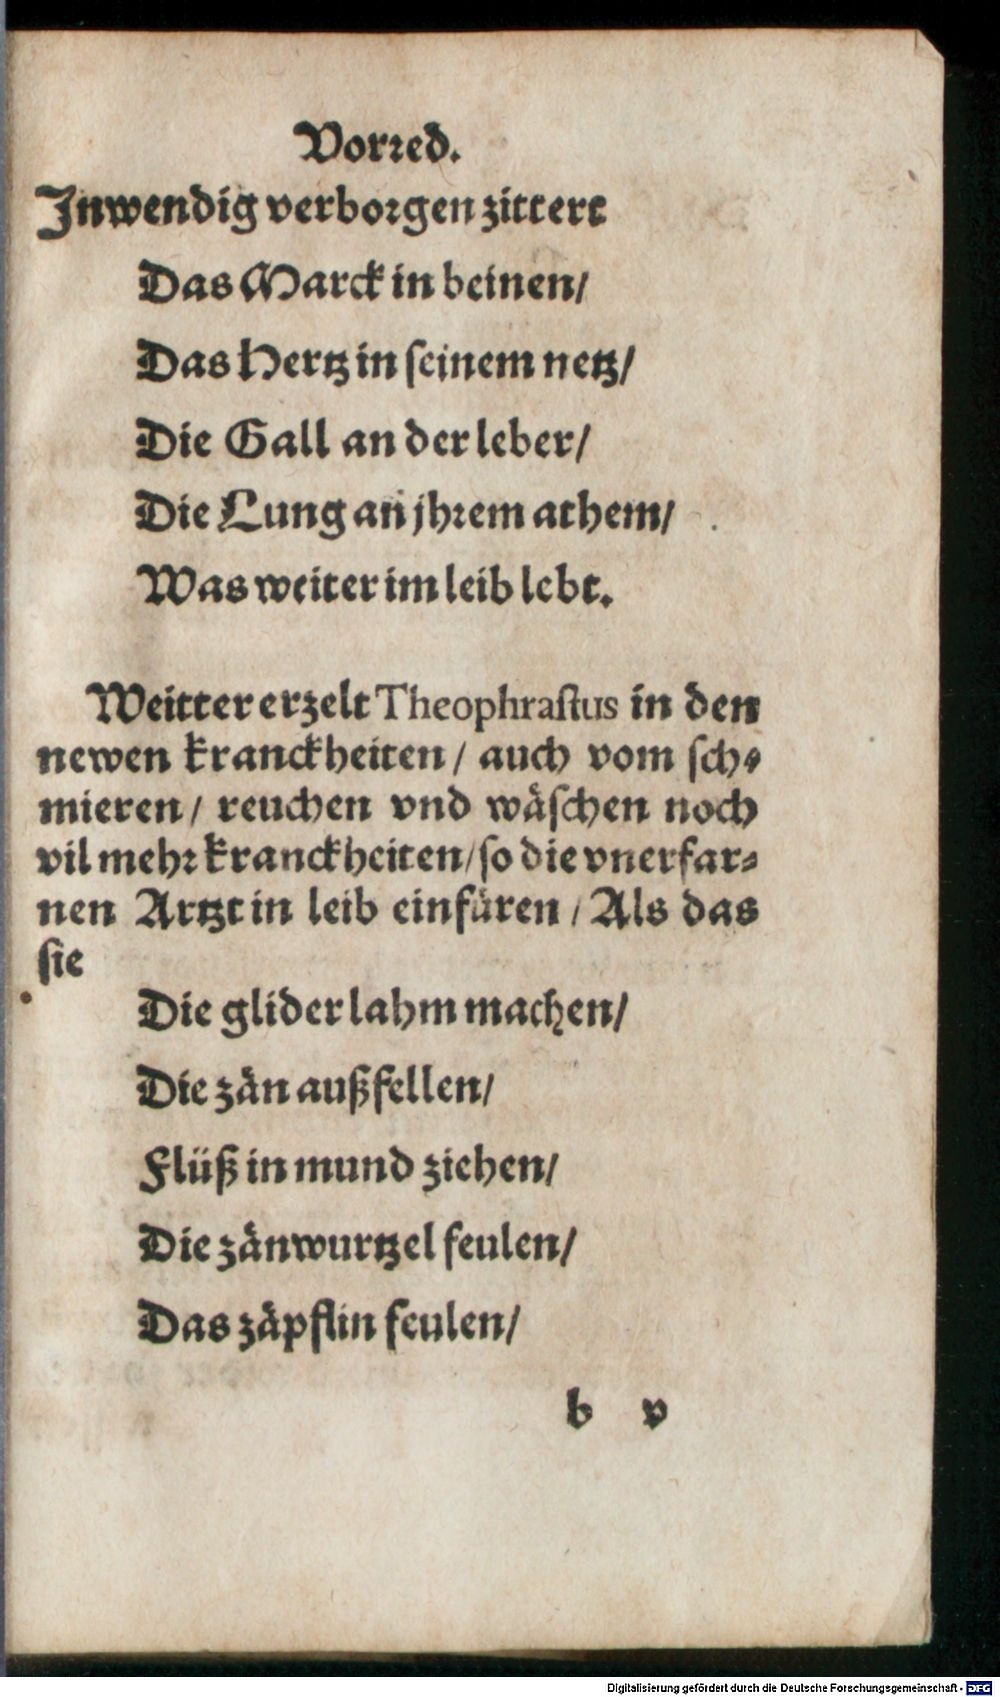 Vorred.
Inwendig verborgen zittert
Das Marck in beinen/
Das Hertz in seinem netz/
Die Gall an der leber/
Die Lung an jhrem athem/
Was weiter im leib lebt.
Weitter erzelt Theophrastus in den
newen kranckheiten / auch vom sch-
mieren / reuchen vnd wäschen noch
vil mehr kranckheiten / so die vnerfar-
nen Artzt in leib einfüren / Als das
sie
Die glider lahm machen/
Die zän außfellen/
Flüß in mund ziehen/
Die zänwurtzel feulen/
Das zäpflin feulen/
b v
Digitalisierung gefördert durch die Deutsche Forschungsgemeinschaft - DFG